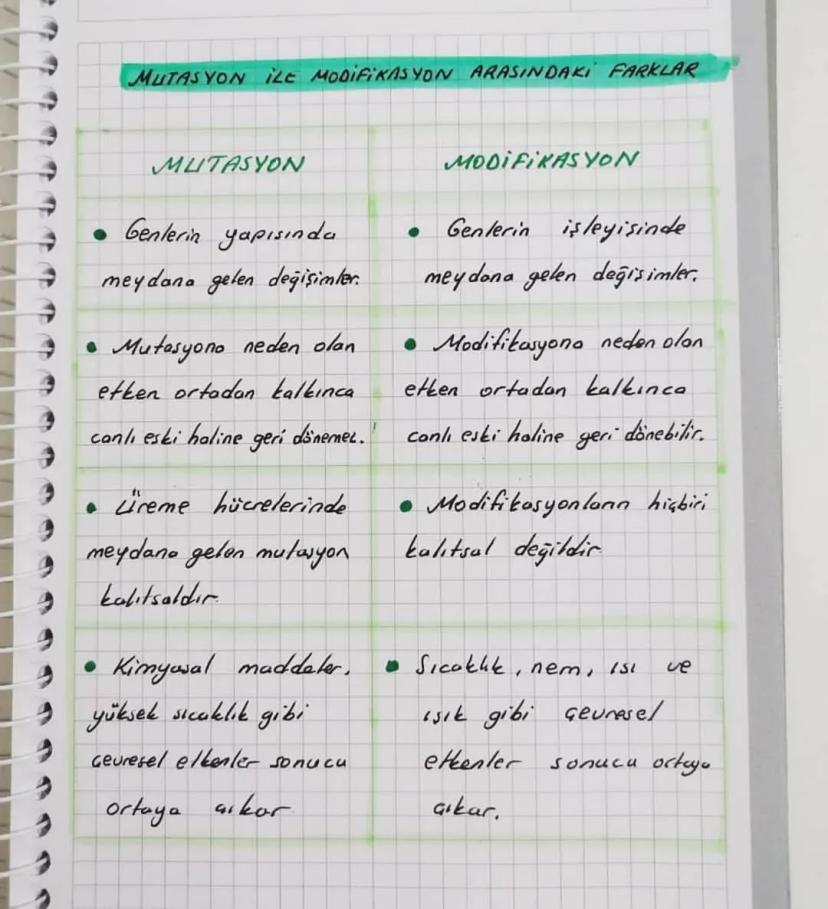 MUTASYON İLE MODİFİKASYON ARASINDAKİ FARKLAR
MUTASYON
• Genlerin yapısında
meydana gelen değişimler.
• Mutasyona neden olan
etken ortadan kalkınca
canlı eski haline geri dönemez.
• Üreme hücrelerinde
meydana gelen mutasyon
kalıtsaldır.
• Kimyasal maddeler,
yüksek sıcaklık gibi
çevresel etkenler sonucu
ortaya çıkar
MODİFİKASYON
• Genlerin işleyişinde
meydana gelen değişimler.
• Modifikasyona neden olan
etken ortadan kalkınca
canlı eski haline geri dönebilir.
• Modifikasyonların hiçbiri
kalıtsal değildir
• Sıcaklık, nem, ısı ve
ışık gibi çevresel
etkenler sonucu ortaya
çıkar.